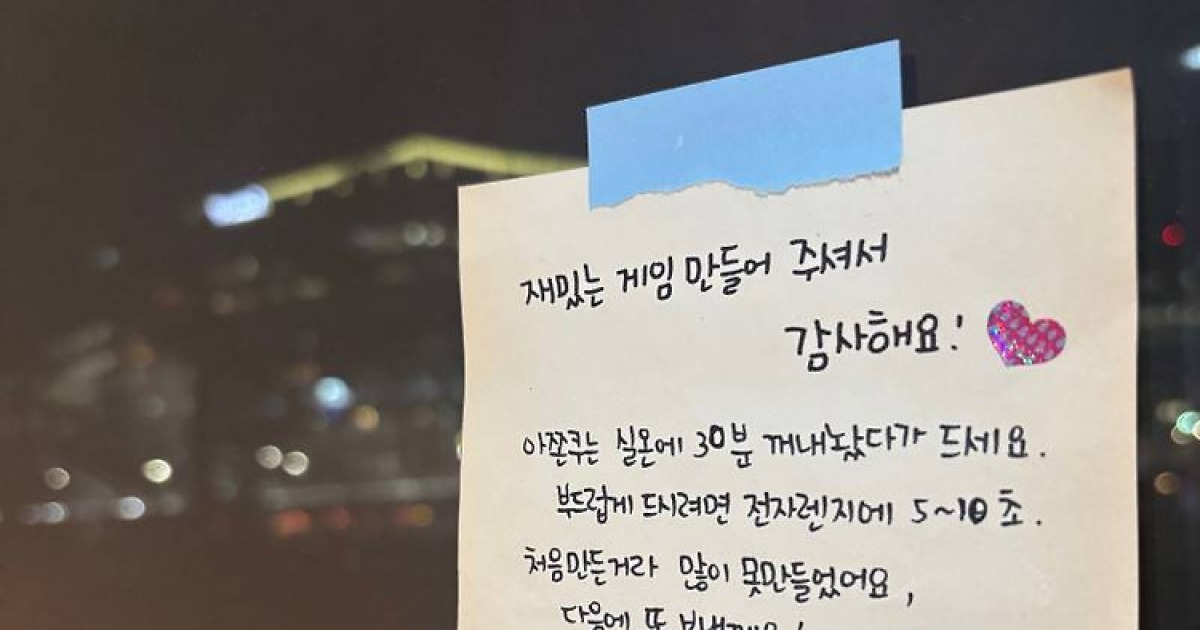 재밌는 게임 만들어 주셔서
감사해요!
아쫀쿠는 실온에 30분 꺼내놨다가 드세요.
부드럽게 드시려면 전자렌지에 5~10초.
처음만든거라 많이 못만들었어요,
다음에 또